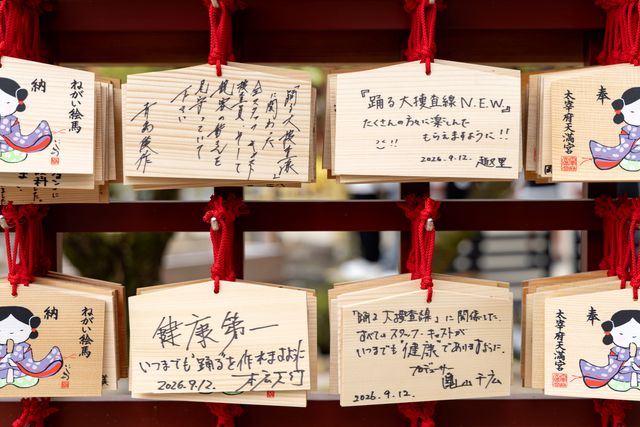 納
ねがい絵馬
「踊る大捜査線」
に関わった
全スタッフ、キャスト
捜査員、そして
観客の皆さんを
見守っていて
下さい
『踊る大捜査線 N.E.W.』
たくさんの方々に楽しんで
もらえますように!!
2026.9.12.
奉
太宰府天満宮
納
ねがい絵馬
健康第一
いつまでも"踊る"を作れますように
2026.9.12
本広克行
「踊る大捜査線」に関係した
すべてのスタッフ・キャストが
いつまでも"健康"でありますように.
プロデューサー
亀山千広
2026.9.12.
奉
太宰府天満宮